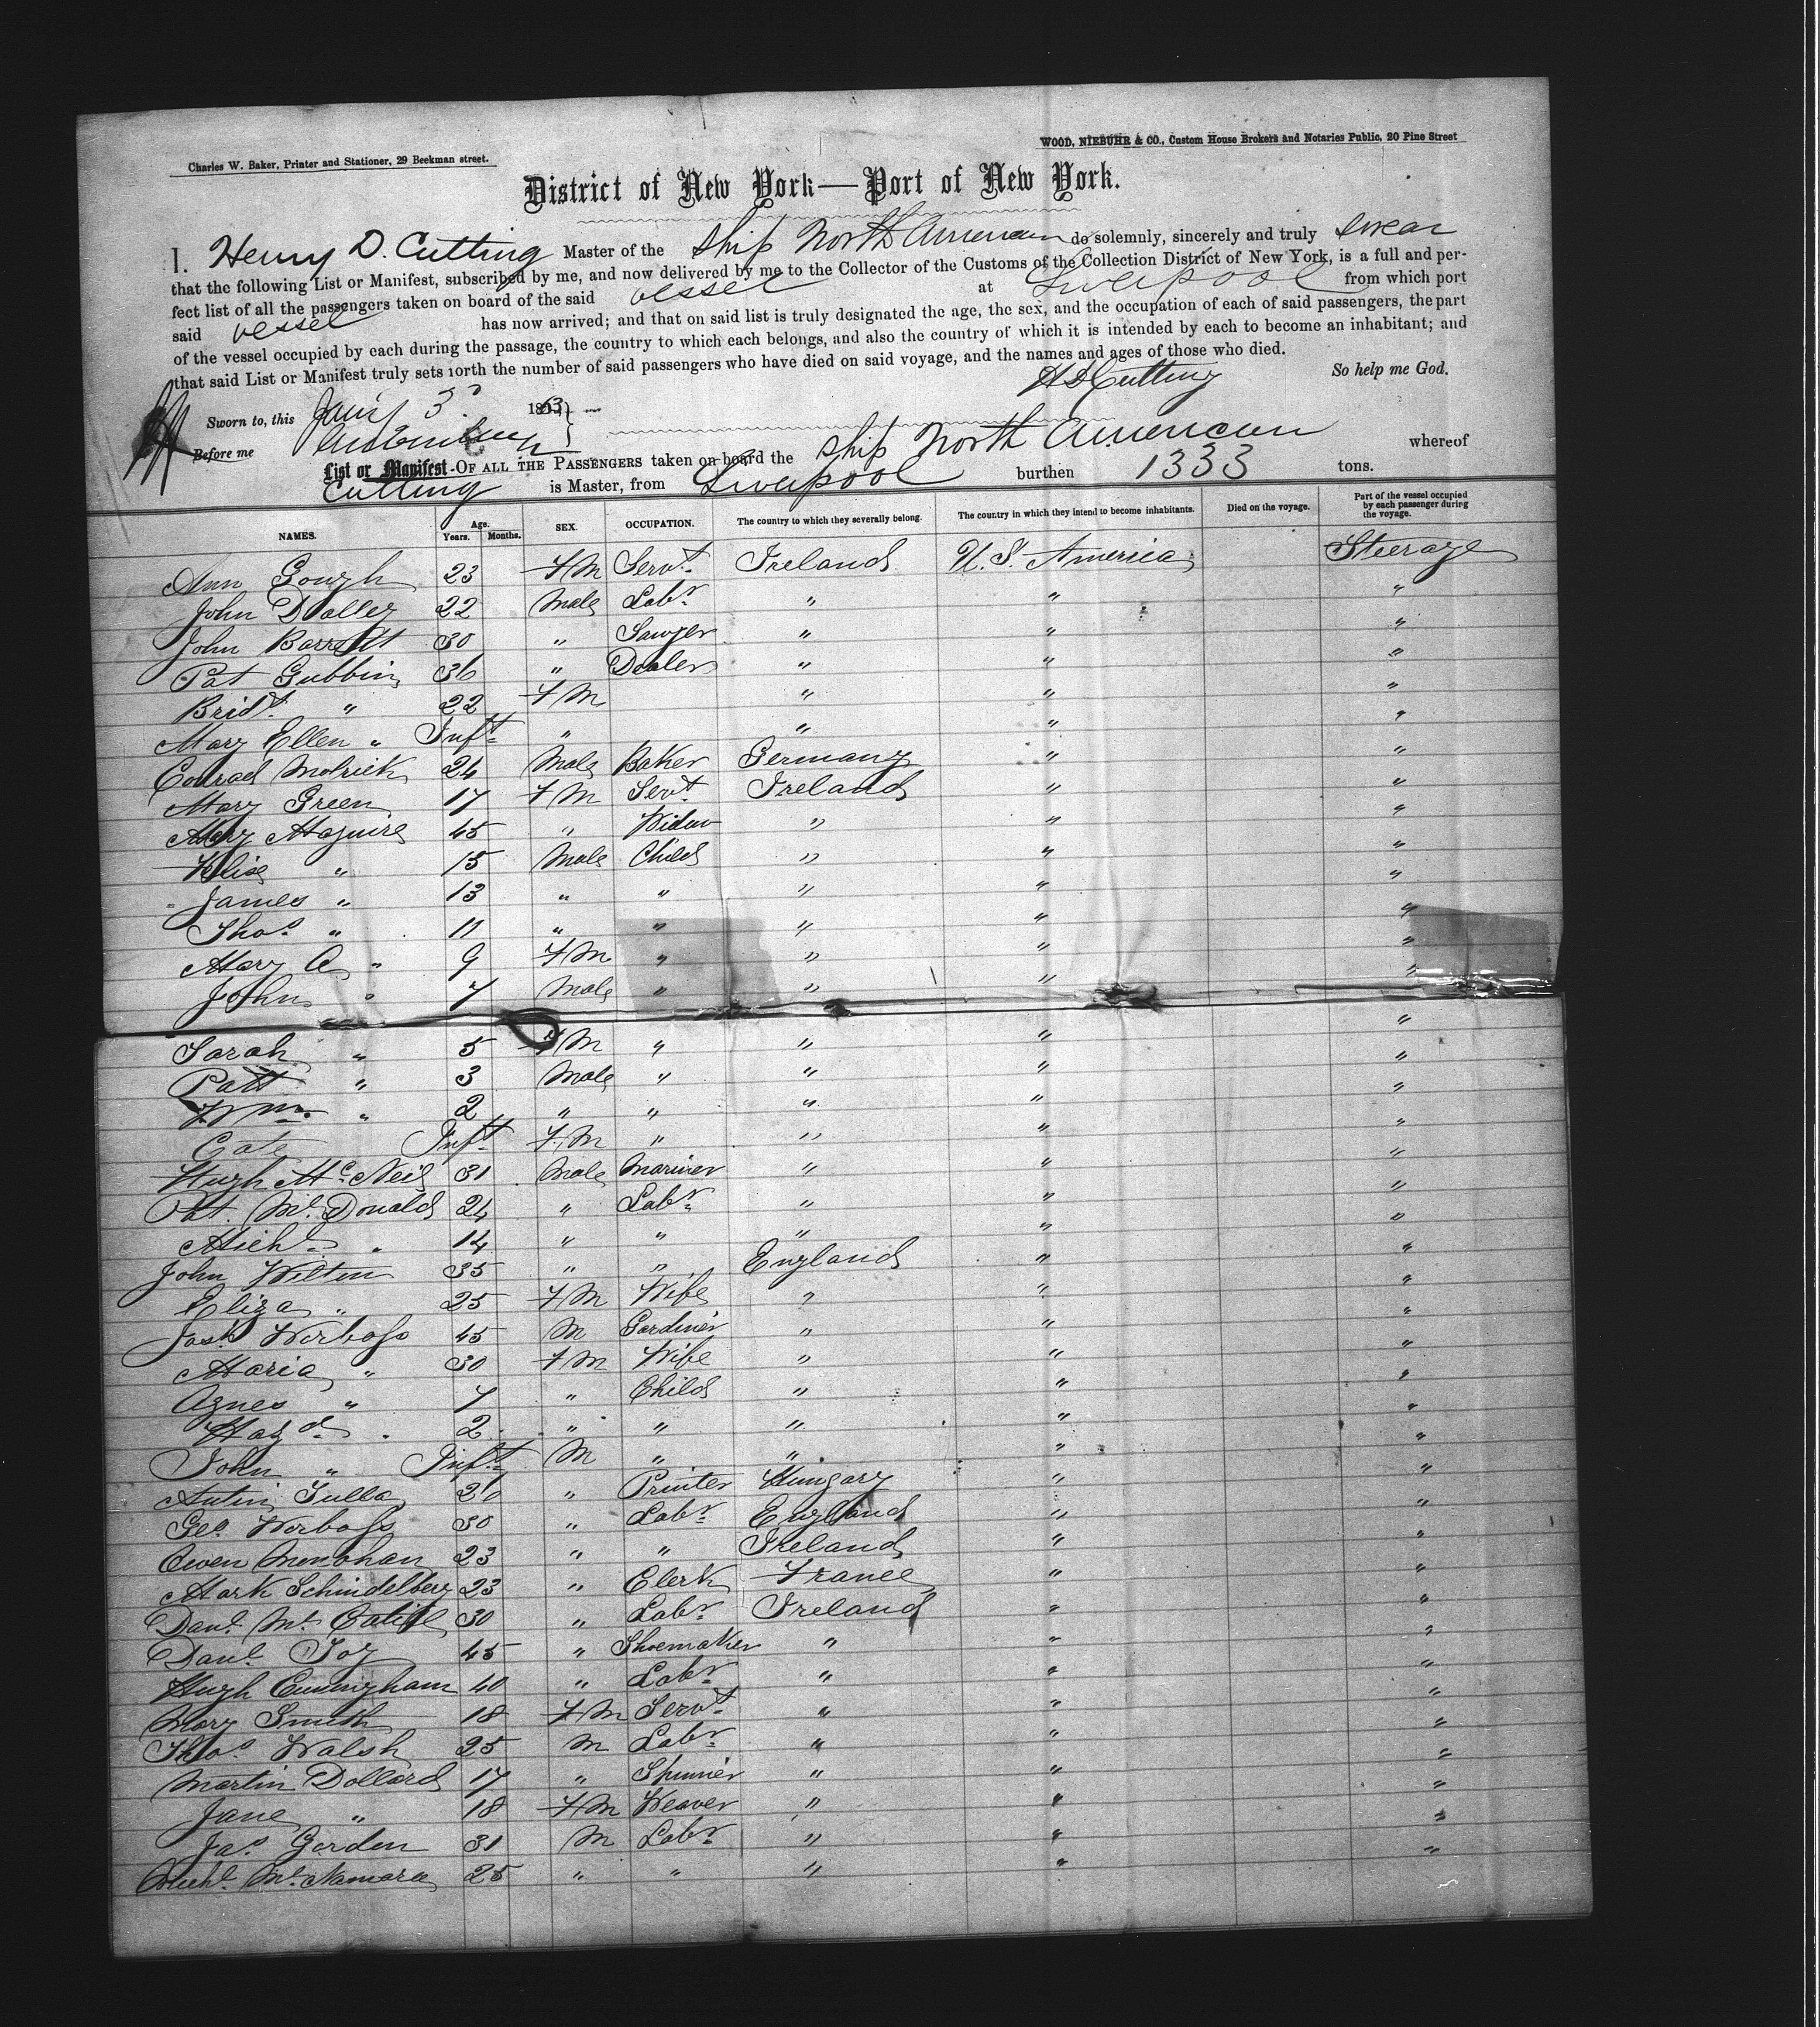 Charles W. Baker, Printer and Stationer, 29 Beekman street.
WOOD, NIEBUHR & CO., Custom House Brokers and Notaries Public, 20 Pine Street
District of New York—Port of New York.
I. Henry D. Cutting Master of the Ship North American do solemnly, sincerely and truly swear
that the following List or Manifest, subscribed by me, and now delivered by me to the Collector of the Customs of the Collection District of New York, is a full and per-
fect list of all the passengers taken on board of the said vessel at Liverpool from which port
said vessel has now arrived; and that on said list is truly designated the age, the sex, and the occupation of each of said passengers, the part
of the vessel occupied by each during the passage, the country to which each belongs, and also the country of which it is intended by each to become an inhabitant; and
that said List or Manifest truly sets forth the number of said passengers who have died on said voyage, and the names and ages of those who died.
H D Cutting So help me God.
Sworn to, this Jany 3d 1863
Before me
List or Manifest OF ALL THE PASSENGERS taken on board the Ship North American whereof
Cutting is Master, from Liverpool burthen 1333 tons.
NAMES. Age. Years. Months. SEX. OCCUPATION. The country to which they severally belong. The country in which they intend to become inhabitants. Died on the voyage. Part of the vessel occupied by each passenger during the voyage.
Ann Gough 23 FM Servt Ireland U.S. America Steerage
John Dolley 22 Male Labr " " "
John Barrett 30 " Sawyer " " "
Pat Gubbin 36 " Dealer " " "
Bridt " 22 FM " " "
Mary Ellen " Inft " " " "
Conrad Molrick 24 Male Baker Germany " "
Mary Green 17 FM Servt Ireland " "
Mary Maguire 45 " Widow " " "
" 15 Male Child " " "
James " 13 " " " " "
Thos " 11 " " " " "
Mary A " 9 FM " " " "
John " 7 Male " " " "
Sarah " 5 FM " " " "
Patt " 3 Male " " " "
Wm " 2 " " " " "
Cate Inft FM " " " "
Hugh McNeil 31 Male Mariner " " "
Pat. McDonald 24 " Labr " " "
Michl " 14 " " " " "
John Wilton 35 " " England " "
Eliza " 25 FM Wife " " "
Josh Worboss 45 M Gardiner " " "
Maria " 30 FM Wife " " "
Agnes " 7 " Child " " "
" 2 " " " " "
John " Inft M " " " "
26 " Printer Hungary " "
Geo. Worboss 30 " Labr England " "
Owen Monohan 23 " " Ireland " "
Mark Schindelberg 23 " Clerk France " "
Danl Mc 30 " Labr Ireland " "
Danl 45 " Shoemaker " " "
Hugh Cuningham 40 " Labr " " "
Mary Smith 18 FM Servt " " "
Thos Walsh 25 M Labr " " "
Martin Dollard 17 " Spinner " " "
Jane " 18 FM Weaver " " "
Jas Gordon 31 M Labr " " "
Michl McNamara 25 " " " " "